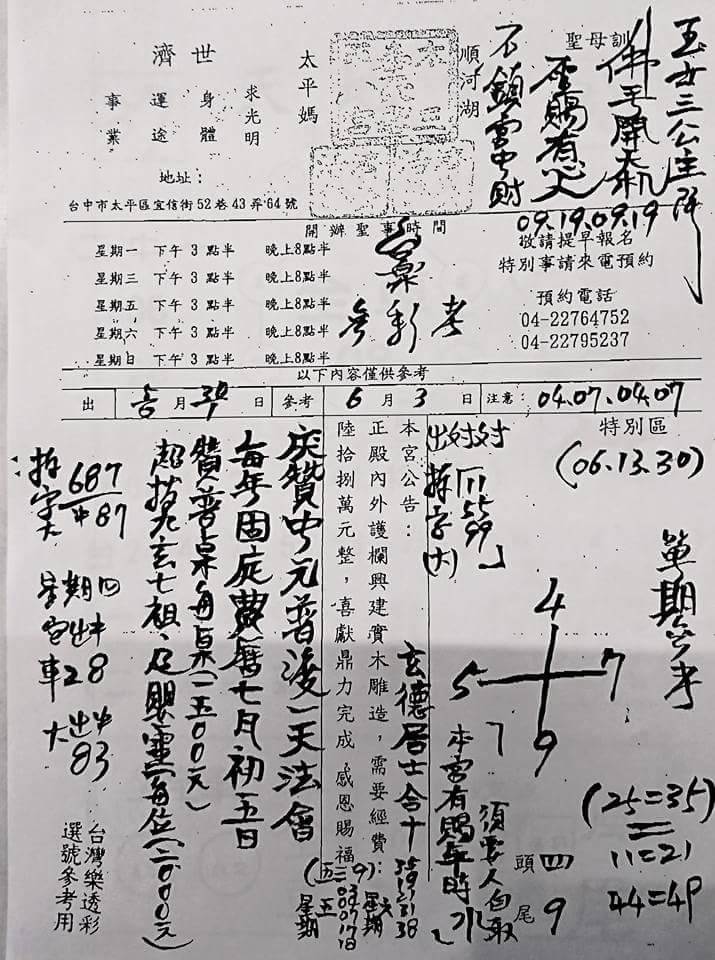 玉女三公主降
聖母訓
佛手開天机
聖賜有心人
不鎖雲中財
09.19.09.19
順河湖
太平媽
濟世
求光明
身體
運途
事業
地址：
台中市太平區宜信街52巷43弄64號
開辦聖事時間
星期一 下午3點半 晚上8點半
星期三 下午3點半 晚上8點半
星期五 下午3點半 晚上8點半
星期六 下午3點半 晚上8點半
星期日 下午3點半 晚上8點半
敬請提早報名
特別事請來電預約
預約電話
04-22764752
04-22795237
以下內容僅供參考
出 月 日 參考 6月3日 注意：04.07.04.07
特別區
(06.13.30)
單期參考
4
5 7
9
7
(25=35)
11=21
44=49
頭四
尾9
須要人自取
本宮有賜年時
本宮公告：
正殿內外護欄興建實木雕造，需要經費：
陸拾捌萬元整，喜獻鼎力完成，感恩賜福
玄德居士合十
慶贊中元普渡一天法會
每年固定農曆七月初五日
贊普桌每桌(一五00元)
超拔九玄七祖、及嬰靈(每位(二000元)
687
中87
星期四
28
83
台灣樂透彩
選號參考用